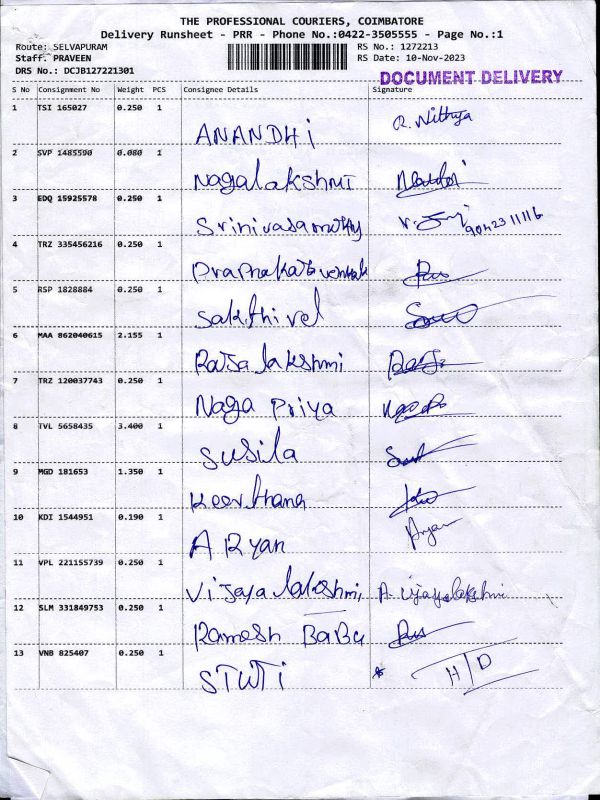 THE PROFESSIONAL COURIERS, COIMBATORE
Delivery Runsheet - PRR - Phone No.:0422-3505555 - Page No.:1
Route: SELVAPURAM RS No.: 1272213
Staff: PRAVEEN RS Date: 10-Nov-2023
DRS No.: DCJB127221301
DOCUMENT DELIVERY
S No Consignment No Weight PCS Consignee Details Signature
1 TSI 165027 0.250 1
ANANDHi R. Nithya
2 SVP 1485590 0.080 1
Nagalakshmi
3 EDQ 15925578 0.250 1
9042311116
4 TRZ 335456216 0.250 1
5 RSP 1828884 0.250 1
Sakthivel
6 MAA 862040615 2.155 1
lakshmi
7 TRZ 120037743 0.250 1
Naga Priya
8 TVL 5658435 3.400 1
Susila
9 MGD 181653 1.350 1
Keerthana
10 KDI 1544951 0.190 1
ARyan Aryan
11 VPL 221155739 0.250 1
Vijaya lakshmi A. Vijayalakshmi
12 SLM 331849753 0.250 1
Ramesh BaBu
13 VNB 825407 0.250 1
H/D